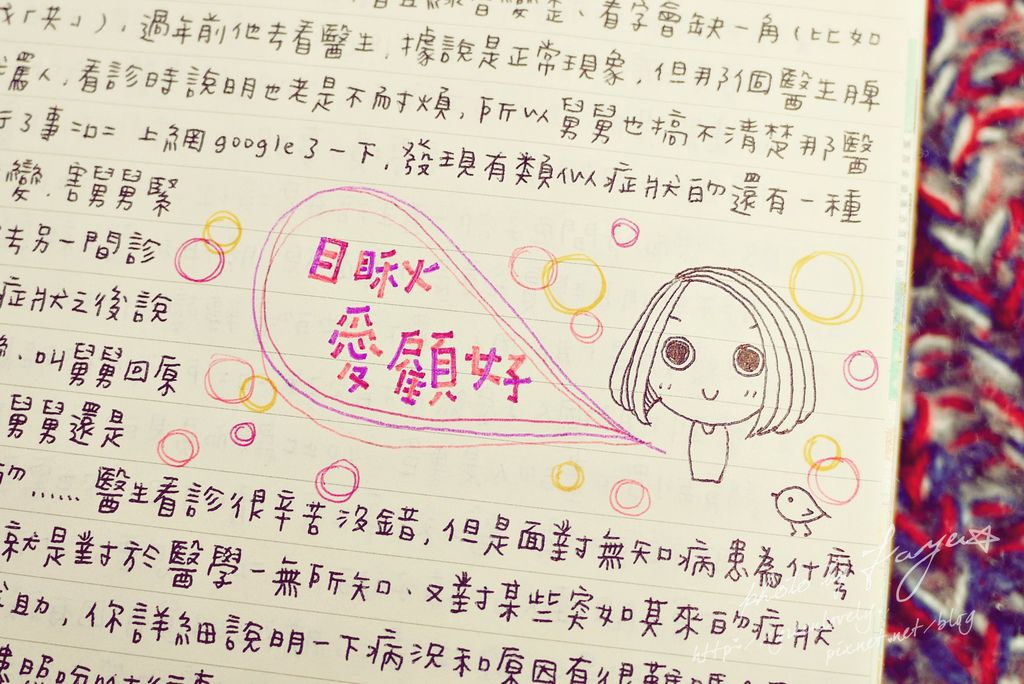 看字會缺一角(比如
「夾」),過年前他去看醫生,據說是正常現象,但那個醫生脾
罵人,看診時說明也老是不耐煩,所以舅舅也搞不清楚那醫
了事=口= 上網google了一下,發現有類似症狀的還有一種
變,害舅舅緊
去另一間診
症狀之後說
叫舅舅回原
舅舅還是
目睭火
愛顧好
的……醫生看診很辛苦沒錯,但是面對無知病患為什麼
就是對於醫學一無所知、又對某些突如其來的症狀
助,你詳細說明一下病況和原因有很難嗎
photo by Fayeu☆
http://
pixnet.net/blog